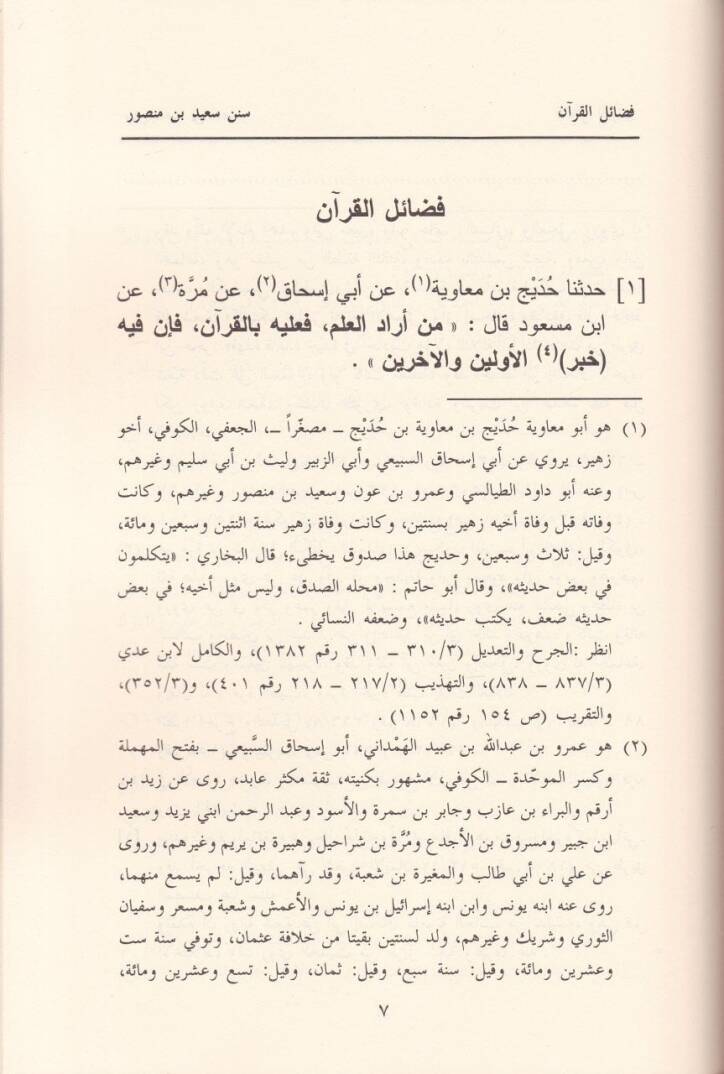 فضائل القرآن
سنن سعيد بن منصور
فضائل القرآن
[١] حدثنا حُدَيْج بن معاوية(١)، عن أبي إسحاق(٢)، عن مُرَّة(٣)، عن
ابن مسعود قال : « من أراد العلم، فعليه بالقرآن، فإن فيه
(خبر)(٤) الأولين والآخرين » .
(١) هو أبو معاوية حُدَيْج بن معاوية بن حُدَيْج ــ مصغّراً ــ، الجعفي، الكوفي، أخو
زهير، يروي عن أبي إسحاق السبيعي وأبي الزبير وليث بن أبي سليم وغيرهم،
وعنه أبو داود الطيالسي وعمرو بن عون وسعيد بن منصور وغيرهم، وكانت
وفاته قبل وفاة أخيه زهير بسنتين، وكانت وفاة زهير سنة اثنتين وسبعين ومائة،
وقيل: ثلاث وسبعين، وحديج هذا صدوق يخطىء؛ قال البخاري : «يتكلمون
في بعض حديثه»، وقال أبو حاتم : «محله الصدق، وليس مثل أخيه؛ في بعض
حديثه ضعف، يكتب حديثه»، وضعفه النسائي .
انظر :الجرح والتعديل (٣١٠/٣ ــ ٣١١ رقم ١٣٨٢)، والكامل لابن عدي
(٨٣٧/٣ ــ ٨٣٨)، والتهذيب (٢١٧/٢ ــ ٢١٨ رقم ٤٠١)، و(٣٥٢/٣)،
والتقريب (ص ١٥٤ رقم ١١٥٢) .
(٢) هو عمرو بن عبدالله بن عبيد الهَمْداني، أبو إسحاق السَّبيعي ــ بفتح المهملة
وكسر الموحّدة ــ الكوفي، مشهور بكنيته، ثقة مكثر عابد، روى عن زيد بن
أرقم والبراء بن عازب وجابر بن سمرة والأسود وعبد الرحمن ابني يزيد وسعيد
ابن جبير ومسروق بن الأجدع ومُرَّة بن شراحيل وهبيرة بن يريم وغيرهم، وروى
عن علي بن أبي طالب والمغيرة بن شعبة، وقد رآهما، وقيل: لم يسمع منهما،
روى عنه ابنه يونس وابن ابنه إسرائيل بن يونس والأعمش وشعبة ومسعر وسفيان
الثوري وشريك وغيرهم، ولد لسنتين بقيتا من خلافة عثمان، وتوفي سنة ست
وعشرين ومائة، وقيل: سنة سبع، وقيل: ثمان، وقيل: تسع وعشرين ومائة،
٧